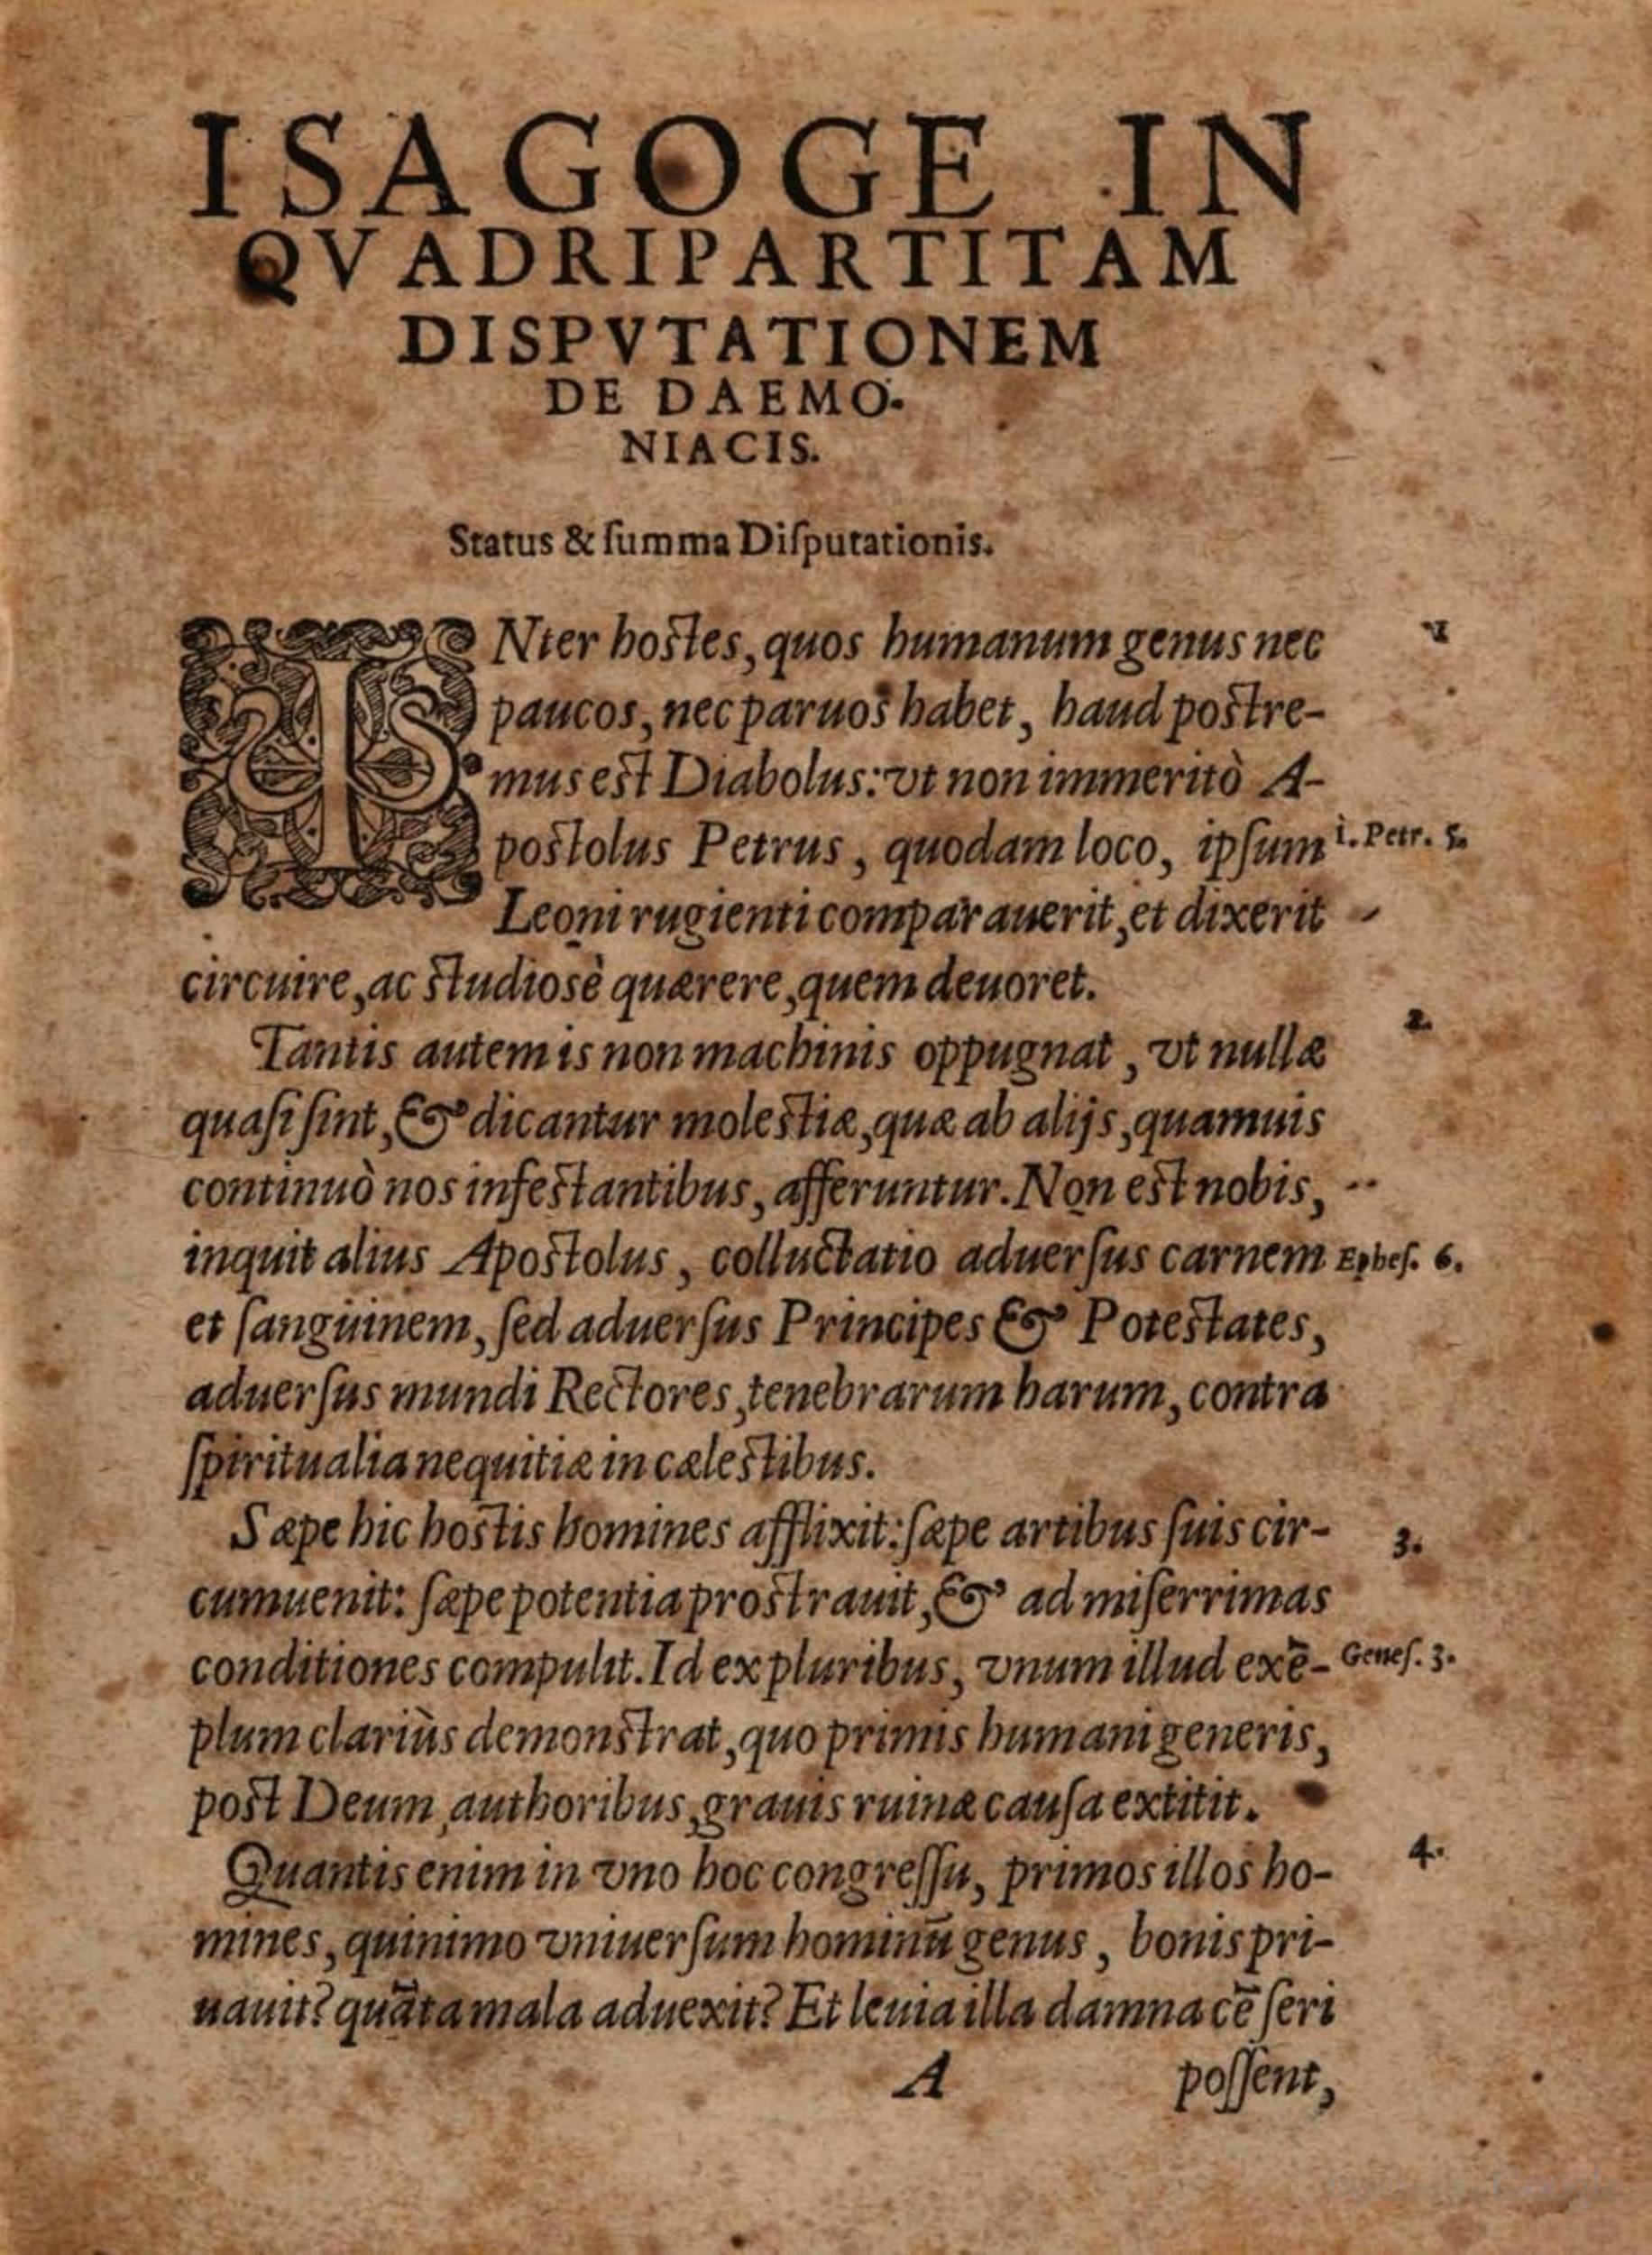 ISAGOGE IN
QVADRIPARTITAM
DISPVTATIONEM
DE DAEMO-
NIACIS.
Status & ſumma Diſputationis.
INter hostes, quos humanum genus nec
1
paucos, nec paruos habet, haud postre-
mus est Diabolus: vt non immeritò A-
postolus Petrus, quodam loco, ipſum
1. Petr. 5.
Leoni rugienti comparauerit, et dixerit
circuire, ac studiosè quærere, quem deuoret.
2.
Tantis autem is non machinis oppugnat, vt nullæ
quaſi ſint, & dicantur molestiæ, quæ ab alijs, quamuis
continuò nos infestantibus, afferuntur. Non est nobis,
inquit alius Apostolus, colluctatio aduerſus carnem
Epheſ. 6.
et ſanguinem, ſed aduerſus Principes & Potestates,
aduerſus mundi Rectores, tenebrarum harum, contra
ſpiritualia nequitiæ in cælestibus.
Sæpe hic hostis homines afflixit: ſæpe artibus ſuis cir-
3.
cumuenit: ſæpe potentia prostrauit, & ad miſerrimas
conditiones compulit. Id ex pluribus, vnum illud exē-
Geneſ. 3.
plum clariùs demonstrat, quo primis humani generis,
post Deum, authoribus, grauis ruinæ cauſa extitit.
4.
Quantis enim in vno hoc congreſſu, primos illos ho-
mines, quinimo vniuerſum hominū genus, bonis pri-
uauit? quāta mala aduexit? Et leuia illa damna cēſeri
A
poſſent,